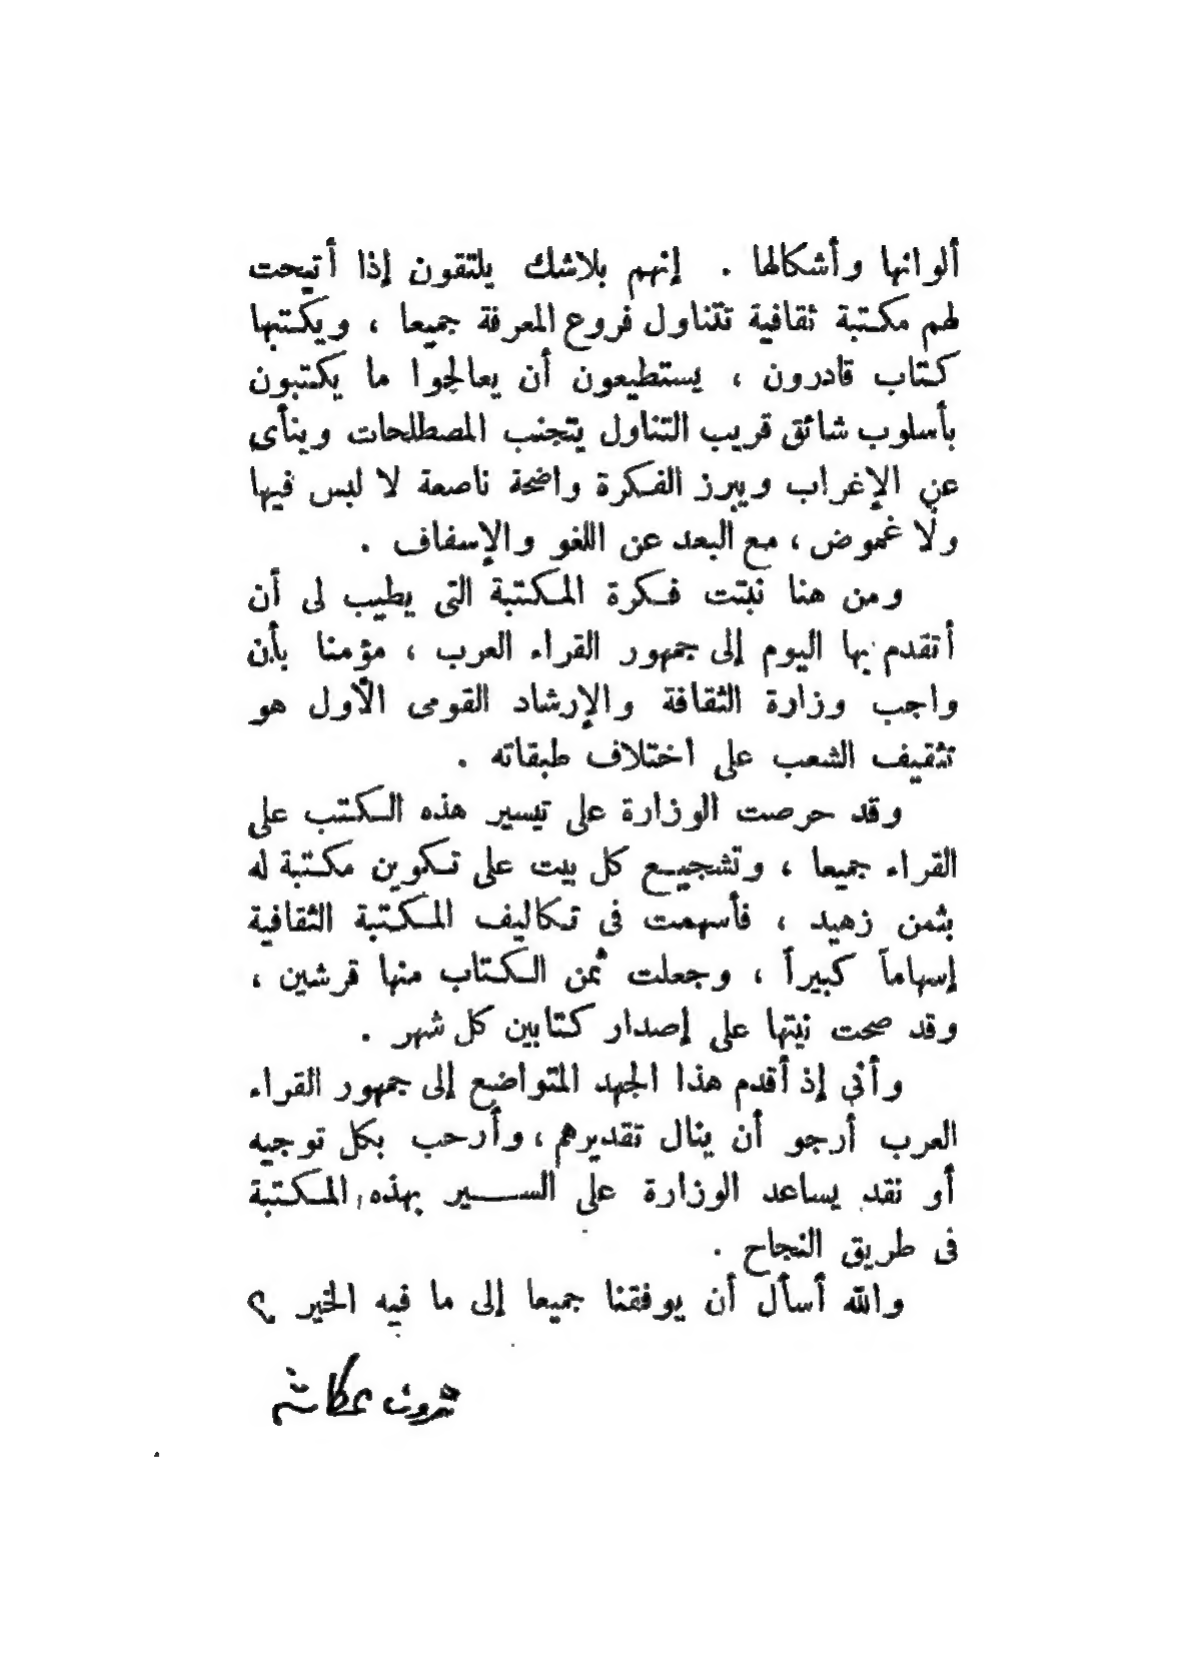 ألوانها وأشكالها . إنهم بلاشك يلتقون إذا أتيحت
لهم مكتبة ثقافية تتناول فروع المعرفة جميعا ، ويكتبها
كتاب قادرون ، يستطيعون أن يعالجوا ما يكتبون
بأسلوب شائق قريب التناول يتجنب المصطلحات وينأى
عن الإغراب ويبرز الفكرة واضحة ناصعة لا لبس فيها
ولا غموض ، مع البعد عن اللغو والإسفاف .
ومن هنا نبتت فكرة المكتبة التى يطيب لى أن
أتقدم بها اليوم إلى جمهور القراء العرب ، مؤمنا بأن
واجب وزارة الثقافة والإرشاد القومى الأول هو
تثقيف الشعب على اختلاف طبقاته .
وقد حرصت الوزارة على تيسير هذه الكتب على
القراء جميعا ، وتشجيع كل بيت على تكوين مكتبة له
بثمن زهيد ، فأسهمت فى تكاليف المكتبة الثقافية
إسهاماً كبيراً ، وجعلت ثمن الكتاب منها قرشين ،
وقد صحت نيتها على إصدار كتابين كل شهر .
وأنى إذ أقدم هذا الجهد المتواضع إلى جمهور القراء
العرب أرجو أن ينال تقديرهم ، وأرحب بكل توجيه
أو نقد يساعد الوزارة على السير بهذه المكتبة
فى طريق النجاح .
والله أسأل أن يوفقنا جميعا إلى ما فيه الخير ؟
ثروت عكاشة